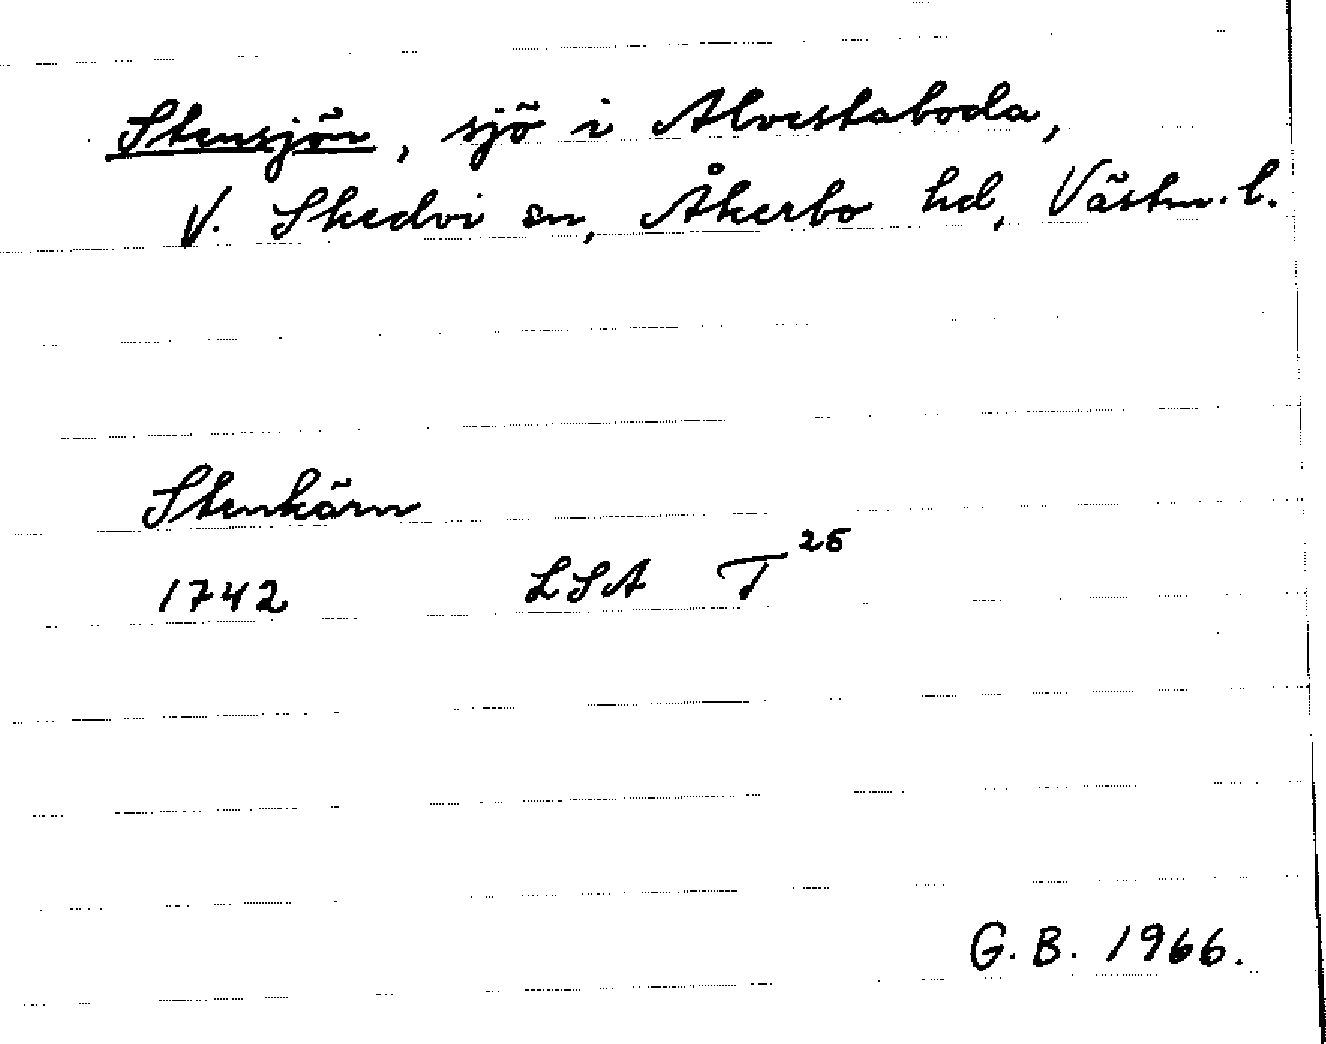 Stensjön, sjö i Alvestaboda,
V. Skedvi sn, Åkerbo hd, Västm. l.
Stenkärn
1742 LSA T 25
G. B. 1966.